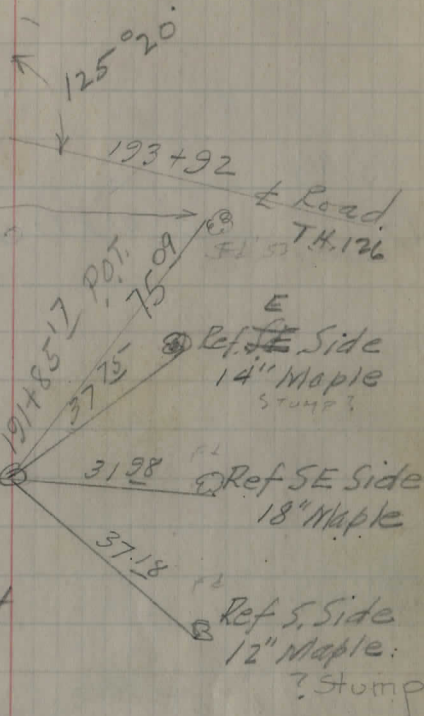 125°20'
193+92
℄ Road
T.H.126
191+85.17 P.O.T.
75.09
E
Ref. SE Side
14" Maple
Stump?
37.75
31.98
Ref SE Side
18" Maple
37.18
Ref S. Side
12" Maple.
? Stump